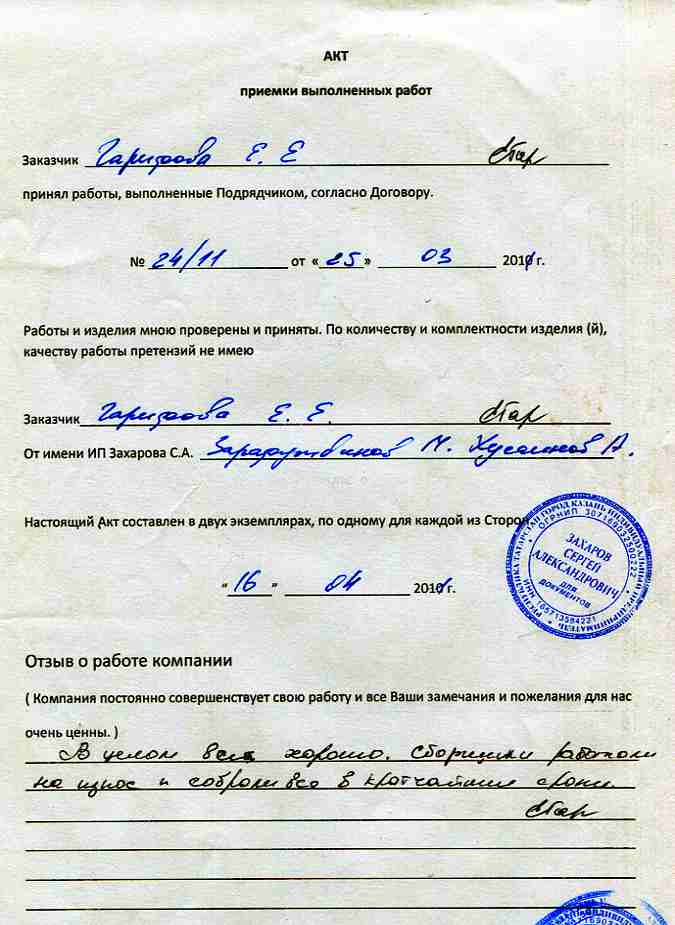 АКТ
приемки выполненных работ
Заказчик Гарифова Е. Е Гар
принял работы, выполненные Подрядчиком, согласно Договору.
№ 24/11 от «25» 03 2011 г.
Работы и изделия мною проверены и приняты. По количеству и комплектности изделия (й),
качеству работы претензий не имею
Заказчик Гарифова Е. Е. Гар
От имени ИП Захарова С.А. М. Хусаинов А.
Настоящий Акт составлен в двух экземплярах, по одному для каждой из Сторон.
РЕСПУБЛИКА ТАТАРСТАН ГОРОД КАЗАНЬ ИНДИВИДУАЛЬНЫЙ ПРЕДПРИНИМАТЕЛЬ
ЗАХАРОВ
СЕРГЕЙ
АЛЕКСАНДРОВИЧ
ДЛЯ
ДОКУМЕНТОВ
«16» 04 2011 г.
Отзыв о работе компании
( Компания постоянно совершенствует свою работу и все Ваши замечания и пожелания для нас
очень ценны. )
В целом все хорошо. Сборщики работали
на износ и собрали все в кратчайшие сроки.
Гар